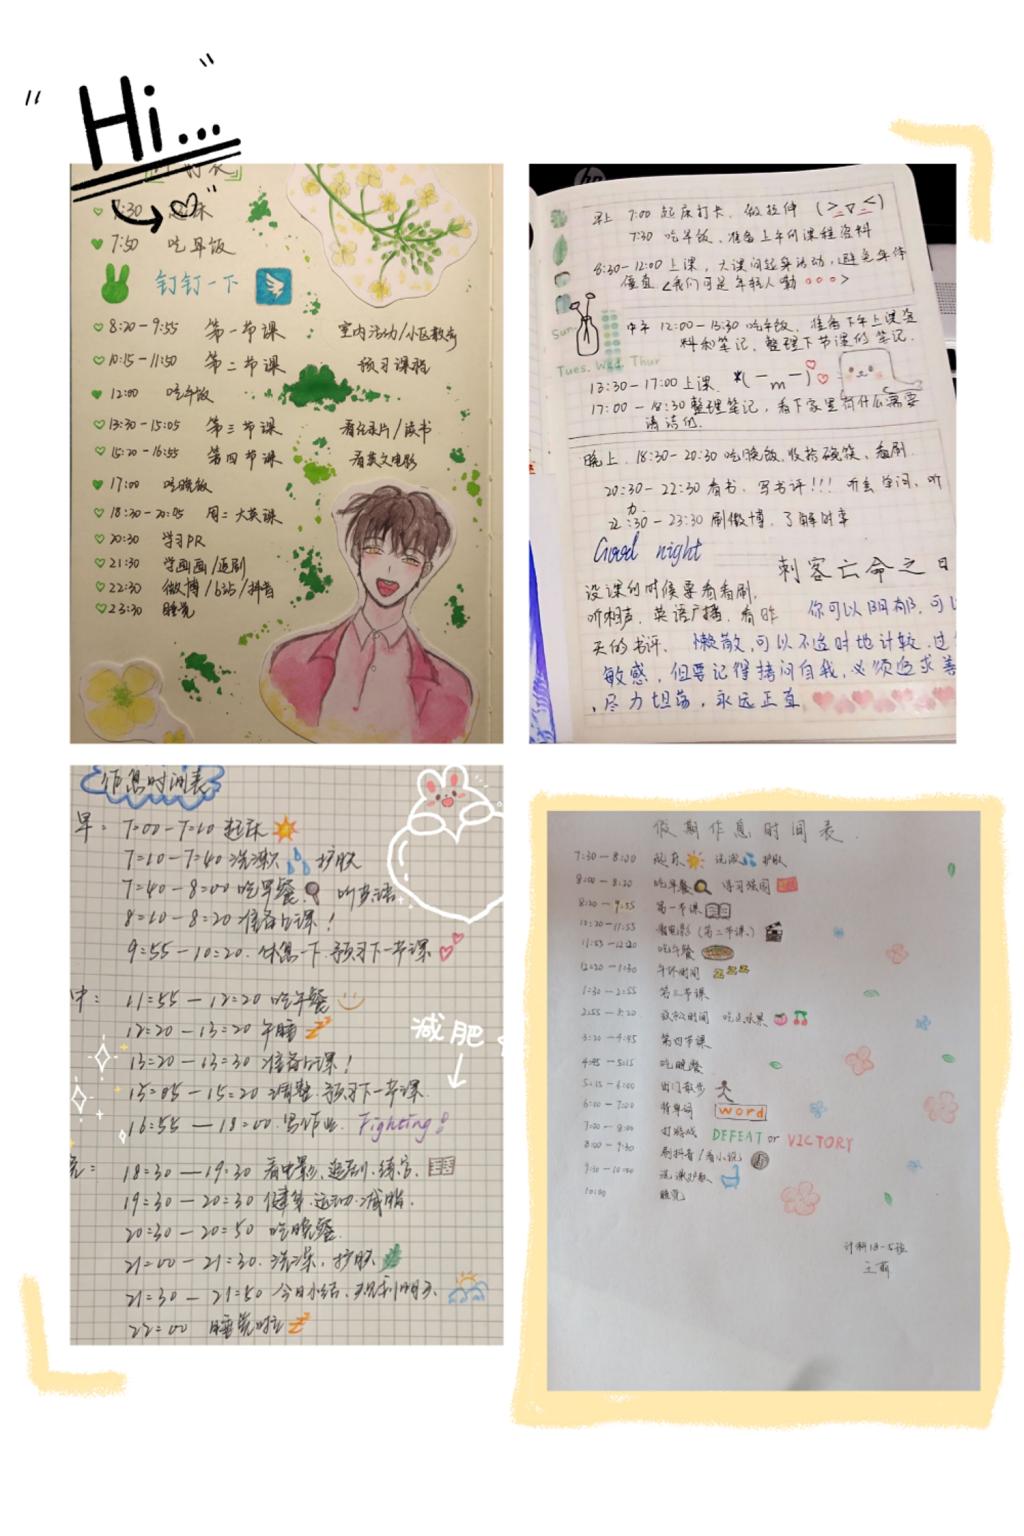 Hi...
起床
7:50 吃早饭
钉钉一下
8:20-9:55 第一节课 室内活动/小区散步
10:15-11:50 第二节课 预习课程
12:00 吃午饭
13:30-15:05 第三节课 看纪录片/读书
15:20-16:55 第四节课 看英文电影
17:00 吃晚饭
18:30-20:05 周二大英课
20:30 学习PR
21:30 学画画/追剧
22:30 微博/b站/抖音
23:30 睡觉
早上 7:00 起床打卡、做拉伸 (>▽<)
7:30 吃早饭、准备上午的课程资料
8:30-12:00 上课，大课间起身活动，避免身体
僵直<我们可是年轻人嘞>
Sun.
中午 12:00-13:30 吃午饭、准备下午上课资
料和笔记、整理下节课的笔记.
Tues. Wed. Thur
13:30-17:00 上课 *(-m-)
17:00-18:30 整理笔记，看下家里有什么需要
清洁的.
晚上 18:30-20:30 吃晚饭、收拾碗筷、看剧.
20:30-22:30 看书、写书评!!! 听套单词、听
力.
22:30-23:30 刷微博、了解时事
Good night
刺客亡命之日
没课的时候要看看剧.
听相声、英语广播、看昨
天的书评.
你可以阴郁,可以
懒散,可以不适时地计较、过
敏感，但要记得拷问自我,必须追求善
,尽力坦荡，永远正直
作息时间表
早: 7:00-7:10 起床
7:10-7:40 洗漱 护肤
7:40-8:00 吃早餐 听英语
8:10-8:20 准备上课!
9:55-10:20 休息一下、预习下一节课
中: 11:55-12:20 吃午餐
12:20-13:20 午睡
减肥
13:20-13:30 准备上课!
15:05-15:20 调整、预习下一节课.
16:55-18:00 写作业. Fighting!
18:30-19:30 看电影、追剧、练字.
19:30-20:30 健身、运动、减脂.
20:30-20:50 吃晚餐.
21:00-21:30 洗澡、护肤
21:30-21:50 今日小结、规划明天
22:00 睡觉啦
假期作息时间表.
7:30-8:00 起床 洗漱 护肤
8:00-8:20 吃早餐 学习强国
8:20-9:55 第一节课
10:20-11:55 看电影(第二节课)
11:55-12:20 吃午餐
12:20-1:30 午休时间 zzz
1:30-2:55 第三节课
2:55-3:20 放松时间 吃点水果
3:20-4:45 第四节课
4:45-5:15 吃晚餐
5:15-6:00 出门散步
6:00-7:00 背单词 word
7:00-8:00 打游戏 DEFEAT or VICTORY
8:00-9:30 刷抖音/看小说
9:30-10:00 洗漱护肤
10:00 睡觉
计科18-5班
王萌